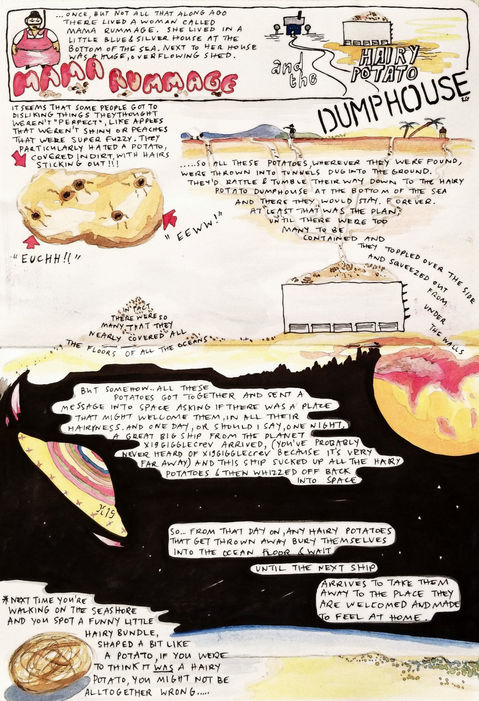 ...ONCE, BUT NOT ALL THAT LONG AGO
THERE LIVED A WOMAN CALLED
MAMA RUMMAGE. SHE LIVED IN A
LITTLE BLUE & SILVER HOUSE AT THE
BOTTOM OF THE SEA. NEXT TO HER HOUSE
WAS A HUGE, OVERFLOWING SHED.
MAMA RUMMAGE
and the
HAIRY
POTATO
DUMPHOUSE
IT SEEMS THAT SOME PEOPLE GOT TO
DISLIKING THINGS THEY THOUGHT
WEREN'T "PERFECT", LIKE APPLES
THAT WEREN'T SHINY OR PEACHES
THAT WERE SUPER FUZZY. THEY
PARTICULARLY HATED A POTATO,
COVERED IN DIRT, WITH HAIRS
STICKING OUT!!!
"EEWW!"
"EUCHH!!"
.....SO ALL THESE POTATOES, WHEREVER THEY WERE FOUND,
WERE THROWN INTO TUNNELS DUG INTO THE GROUND.
THEY'D RATTLE & TUMBLE THEIR WAY DOWN TO THE HAIRY
POTATO DUMPHOUSE AT THE BOTTOM OF THE SEA
AND THERE THEY WOULD STAY. FOREVER.
AT LEAST THAT WAS THE PLAN!
UNTIL THERE WERE TOO
MANY TO BE
CONTAINED AND
THEY TOPPLED OVER THE SIDE
AND SQUEEZED OUT
FROM
UNDER
THE
WALLS
IN FACT
THERE WERE SO
MANY THAT THEY
NEARLY COVERED ALL
THE FLOORS OF ALL THE OCEANS
BUT SOMEHOW.. ALL THESE
POTATOES GOT TOGETHER AND SENT A
MESSAGE INTO SPACE ASKING IF THERE WAS A PLACE
THAT MIGHT WELCOME THEM, IN ALL THEIR
HAIRYNESS. AND ONE DAY, OR SHOULD I SAY, ONE NIGHT,
A GREAT BIG SHIP FROM THE PLANET
X19GIGGLECREV ARRIVED, (YOU'VE PROBABLY
NEVER HEARD OF X19GIGGLECREV BECAUSE IT'S VERY
FAR AWAY) AND THIS SHIP SUCKED UP ALL THE HAIRY
POTATOES & THEN WHIZZED OFF BACK
INTO SPACE
X19
SO... FROM THAT DAY ON, ANY HAIRY POTATOES
THAT GET THROWN AWAY BURY THEMSELVES
INTO THE OCEAN FLOOR & WAIT
UNTIL THE NEXT SHIP
ARRIVES TO TAKE THEM
AWAY TO THE PLACE THEY
ARE WELCOMED AND MADE
TO FEEL AT HOME.
*NEXT TIME YOU'RE
WALKING ON THE SEASHORE
AND YOU SPOT A FUNNY LITTLE
HAIRY BUNDLE,
SHAPED A BIT LIKE
A POTATO, IF YOU WERE
TO THINK IT WAS A HAIRY
POTATO, YOU MIGHT NOT BE
ALLTOGETHER WRONG.....